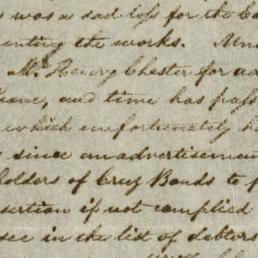 was a sad loss for the
enting the works.
Mr. Henry Chester for
and time has pass
which unfortunately h
since an advertisemen
holders of Cruz Bonds to
sertion if not complied
see in the list of debtors